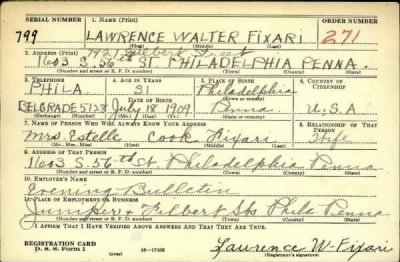 SERIAL NUMBER 1. Name (Print) ORDER NUMBER
799 LAWRENCE WALTER FIXARI 271
(First) (Middle) (Last)
2. Address (Print)
1603 S. 56th ST. PHILADELPHIA PENNA.
(Number and street or R. F. D. number) (Town) (County) (State)
3. Telephone 4. Age in Years 5. Place of Birth 6. Country of Citizenship
PHILA 31 Philadelphia
Date of Birth (Town or county)
BELGRADE 5128 July 18 1909 Penna U.S.A
(Exchange) (Number) (Mo.) (Day) (Yr.) (State or country)
7. Name of Person Who Will Always Know Your Address 8. Relationship of That Person
Mrs. Estelle Cook Fixari Wife
(Mr., Mrs., Miss) (First) (Middle) (Last)
9. Address of That Person
1603 S. 56th St. Philadelphia Penna
(Number and street or R. F. D. number) (Town) (County) (State)
10. Employer's Name
Evening Bulletin
11. Place of Employment or Business
Juniper & Filbert Sts Phila Penna
(Number and street or R. F. D. number) (Town) (County) (State)
I Affirm That I Have Verified Above Answers and That They Are True.
REGISTRATION CARD
D. S. S. Form 1 16—17105 Lawrence W. Fixari
(Registrant's signature)